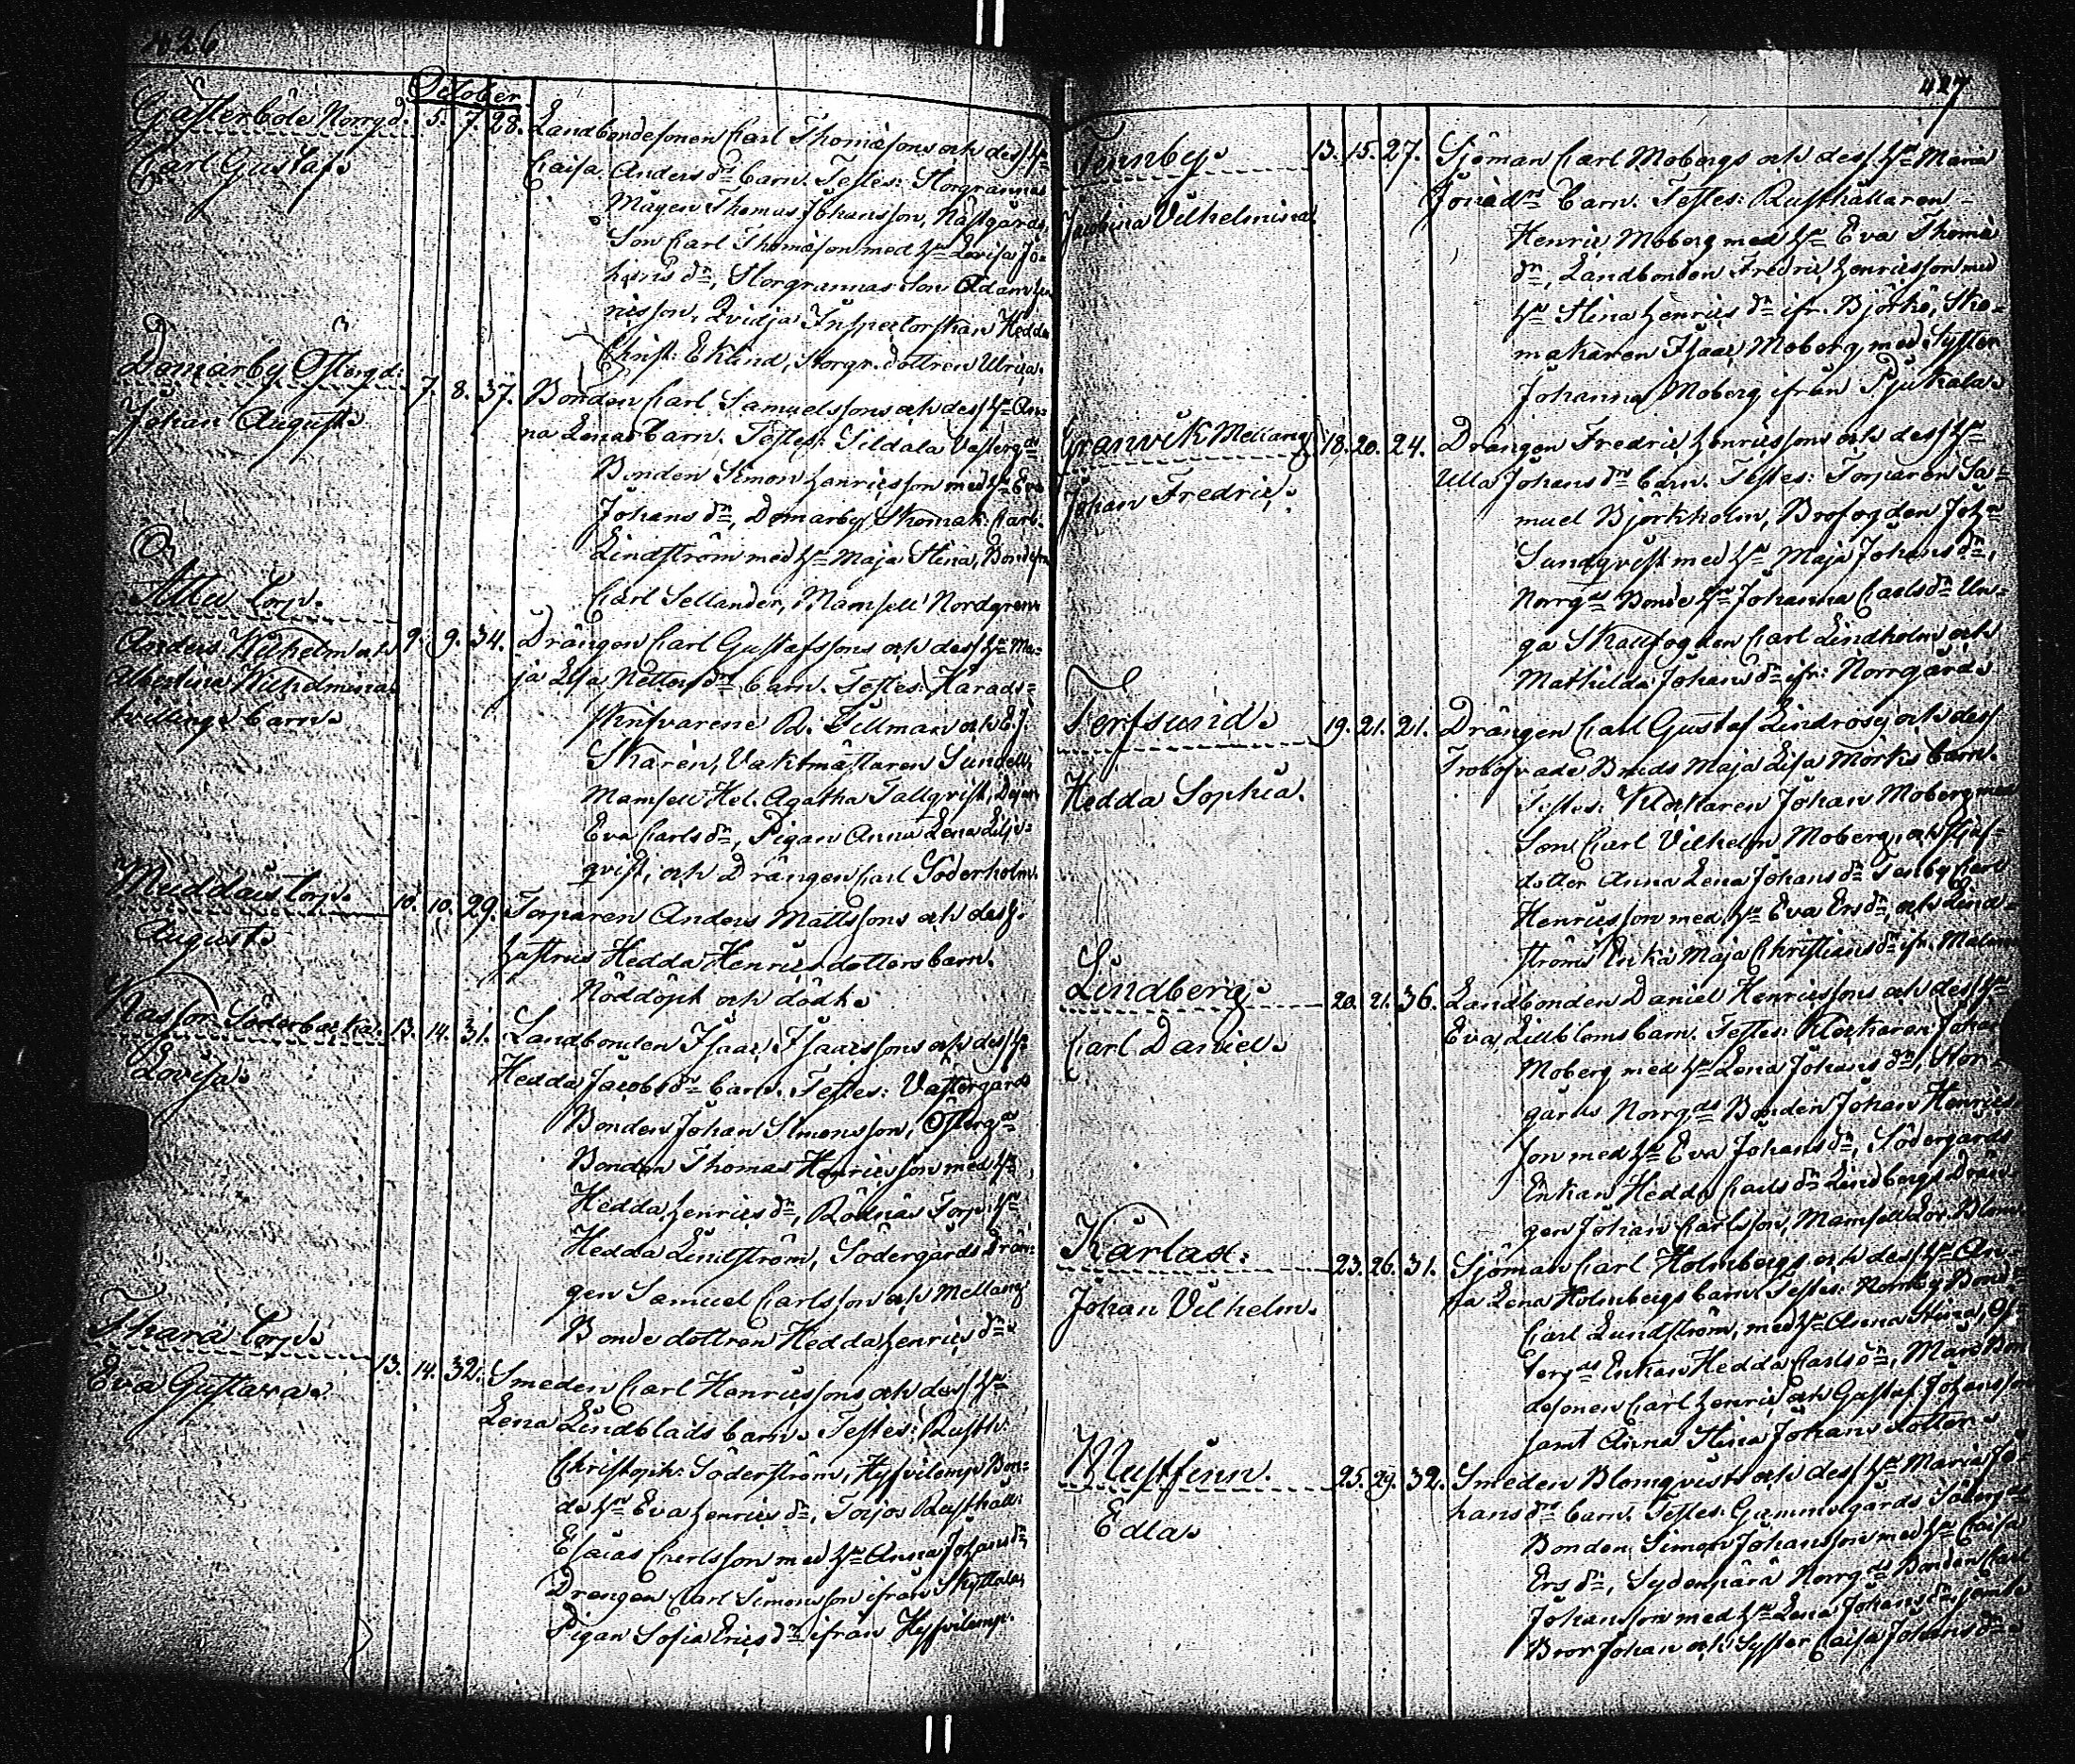 426
October
Gästerböle Norrgd. 5. 7. 28. Landbondesonen Carl Thomæsons och dess hu
Carl Gustaf. Caisa Andersdrs barn. Testes: Storgrannas
Mågen Thomas Johansson, Nästgårds
Son Carl Thomæson med hu Lovisa Jo-
hansdr, Storgrannas Son Adam Hen
ricsson, Qvidja Inspectorskan Hedda
Christ: Eklund, Storgr. dottren Ulrica.
Domarby Österg: 7. 8. 37. Bonden Carl Samuelssons och dess hu An-
Johan August. na Lenas barn. Testes: Sildala Vesterg
Bonden Simon Henricsson med hu Eva
Johansdr, Domarby Skomak: Carl
Lindström med hu Maja Stina, Bondes
Carl Sellander, Mamsell Nordgren
Attu Torp.
Anders Wilhelm och 9. 9. 34. Drängen Carl Gustafssons och dess hu Ma-
Albertina Wilhelmina ja Lisa barn. Testes: Härads-
tvillinge barn. skrifvarene R. Tillman och E. J.
Skarén, Vaktmästaren Sundell,
Mamsell Hel. Agatha Tallqvist,
Eva Carlsdr, Pigan Anna Lena Lilje-
qvist, och Drängen Carl Söderholm.
Muddais Torp. 10. 10. 29. Torparen Anders Mattssons och dess
August. hustrus Hedda Henricsdotters barn.
Nöddöpt och död.
Söderbacka. 13. 14. 31. Landbonden Isaac Isaacssons och dess h
Lovisa. Hedda Jacobsdrs barn. Testes: Västergårds
Bonden Johan Simonsson, Österg
Bonden Thomas Henricsson med hu
Hedda Henricsdr, Rödnäs Torp. hu
Hedda Lindström, Södergårds Drän-
gen Samuel Carlsson och Mellang
Bonde dottren Hedda Henricsdr.
Thara Torp. 13. 14. 32. Smeden Carl Henricssons och dess hu
Eva Gustava. Lena Lindblads barn. Testes: Rusth:
Christoph: Söderström, Hyfvilemp Bon-
de hu Eva Henricsdr, Rusthåll:
Esaias Carlsson med hu Anna Johansdr
Drengen Carl Simonsson ifrån Skyttala,
Pigan Sofia Ericsdr ifrån Hyfvilemp.
427
Tennby. 13. 15. 27. Sjöman Carl Mobergs och dess hu Maria
Jacobina Vilhelmina Jonædrs barn. Testes: Rusthållaren
Henric Moberg med hu Eva Thomæ
dr, Landbonden Fredric Henricsson med
hu Stina Henricsdr ifr. Björkö, Sko-
makaren Isaac Moberg med Syster
Johanna Moberg ifrån Pjukala.
Granvik Mellang 18. 20. 24. Drängen Fredric Henricssons och dess hu
Johan Fredric. Ulla Johansdrs barn. Testes: Torparen Sa-
muel Björkholm, Brofogden Johan
Sundqvist med hu Maja Johansdr,
Norrgds Bonde hu Johanna Carlsdr Un-
ga Skallfogden Carl Lindholm och
Mathilda Johansdr ifr: Norrgård.
Terfsund. 19. 21. 21. Drängen Carl Gustaf Lindroos och dess
Hedda Sophia. Trolofvade Bruds Maja Lisa Mörks barn.
Testes: Klockaren Johan Moberg med
Son Carl Vilhelm Moberg, och Stjuf-
dotter Anna Lena Johansdr Tenby Carl
Henricsson med hu Eva Ersdr, och Lind-
ströms Enka Maja Christiansdr ifr. Malm
Lindberg. 20. 21. 36. Landbonden Daniel Henricssons och dess hu
Carl Daniel. Eva Lillbloms barn. Testes: Klockaren Johan
Moberg med hu Lena Johansdr, Stor-
gårds Norrgds Bonden Johan Henrics
son med hu Eva Johansdr, Södergårds
Enkan Hedda Carlsdr Lindbergs Drän
gen Johan Carlsson, Mamsell Lov. Blom
Kärlax: 23. 26. 31. Sjöman Carl Holmbergs och dess hu An-
Johan Vilhelm. na Lena Holmbergs barn. Testes: Norrby Bonde
Carl Lundström, med hu Anna Stina, Ös-
tergds Enkan Hedda Carlsdr, Mars Bon
desonen Carl Henric och Gustaf Johansson
samt Anna Stina Johans dotter.
Mustfinn. 25. 29. 32. Smeden Blomqvists och dess hu Maria Jo
Edla. hansdrs barn. Testes: Gammelgårds Söderg
Bonden Simon Johansson med hu Caisa
Ersdr, Sydenperä Norrgds Bonden Carl
Johansson med hu Lena Johansdr jemte
Bror Johan och Syster Caisa Johansdr.